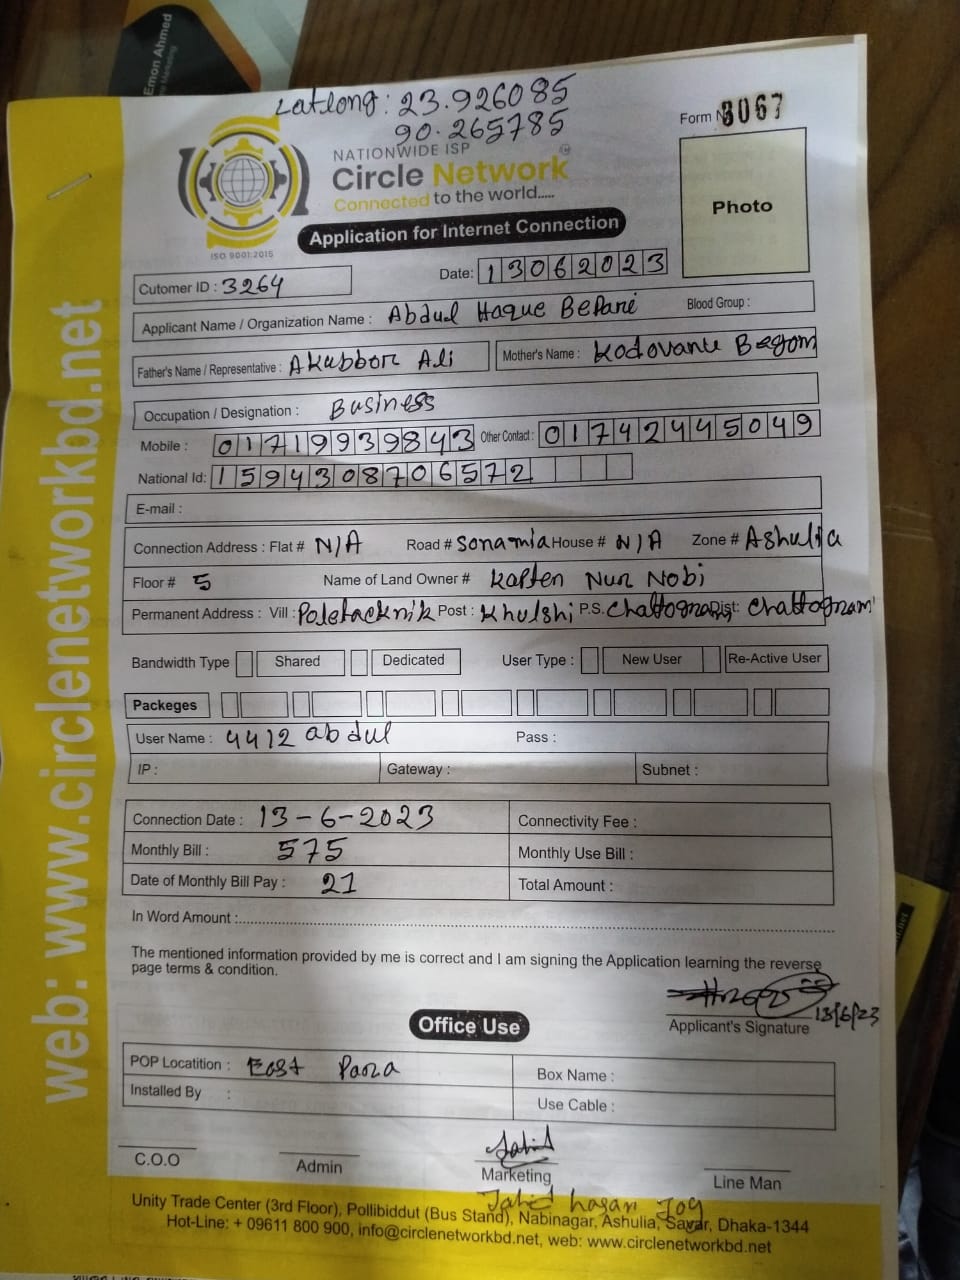 Emon Ahmed
Latlong: 23.926085
90.265785
Form No 3067
NATIONWIDE ISP
Circle Network
Connected to the world.....
ISO 9001:2015
Photo
Application for Internet Connection
Cutomer ID : 3264
Date: 13062023
Applicant Name / Organization Name : Abdul Haque Bepari Blood Group :
Father's Name / Representative : Akubbor Ali Mother's Name : Kodovanu Begom
Occupation / Designation : Business
Mobile : 01719939843 Other Contact : 01742445049
National Id: 1594308706572
E-mail :
Connection Address : Flat # N/A Road # Sonamia House # N/A Zone # Ashulia
Floor # 5 Name of Land Owner # Kapten Nur Nobi
Permanent Address : Vill : Poletacknik Post : Khulshi P.S. Chattogram Dist: Chattogram
Bandwidth Type Shared Dedicated User Type : New User Re-Active User
Packeges
User Name : 4412 abdul Pass :
IP : Gateway : Subnet :
Connection Date : 13-6-2023 Connectivity Fee :
Monthly Bill : 575 Monthly Use Bill :
Date of Monthly Bill Pay : 21 Total Amount :
In Word Amount :
The mentioned information provided by me is correct and I am signing the Application learning the reverse
page terms & condition.
13/6/23
Applicant's Signature
Office Use
POP Locatition : East Para Box Name :
Installed By : Use Cable :
C.O.O Admin Marketing Line Man
Jahid hasan Joy
Unity Trade Center (3rd Floor), Pollibiddut (Bus Stand), Nabinagar, Ashulia, Savar, Dhaka-1344
Hot-Line: + 09611 800 900, info@circlenetworkbd.net, web: www.circlenetworkbd.net
web: www.circlenetworkbd.net